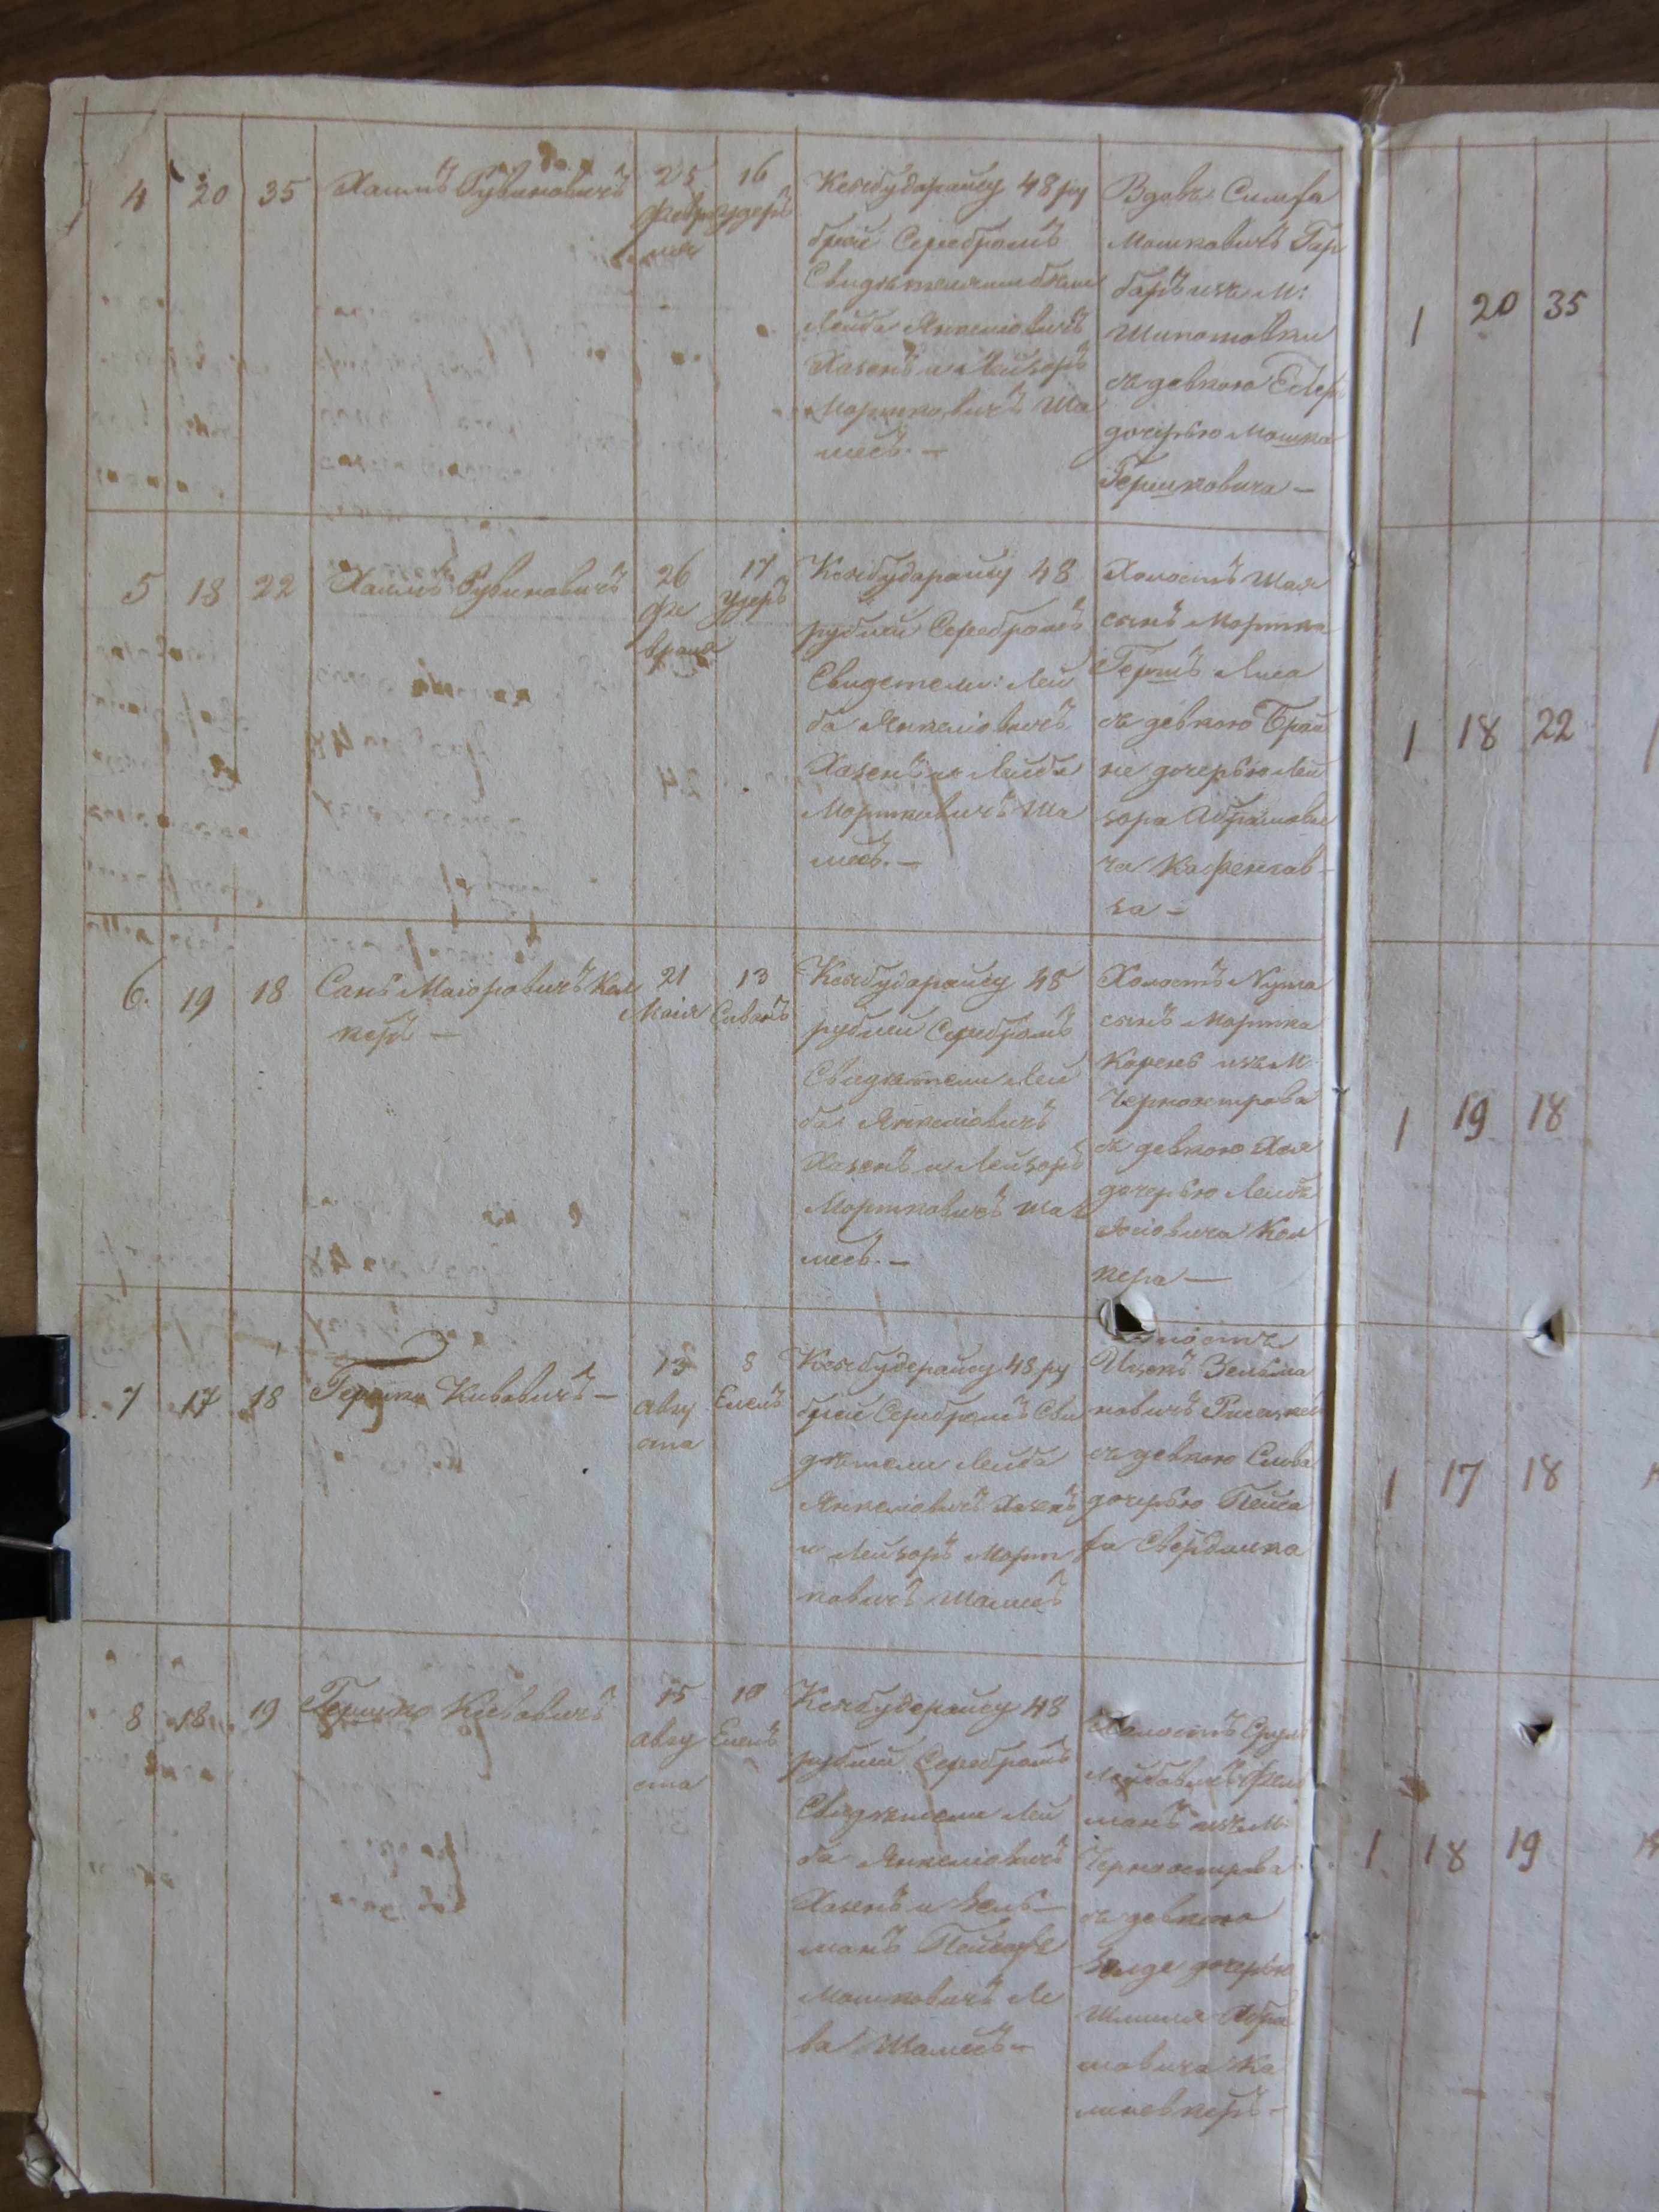 4 20 35 Хаимъ Рувиновичъ
25 февра
ля
16
Удеръ
Кевсбударайсу 48 ру
блей Серебромъ
Лейба Янкелiовичъ
Хазенъ и Лейзоръ
Мортковичъ Ша
месъ. —
Вдовъ Симха
Мошковичъ Гар
баръ изъ М:
Шипотовки
съ девкою Естеръ
дочерью Мошка
Гершковича —
5 18 22 Хаимъ Рувиновичъ
26
фе
враля
17
Удеръ
Кевсбударайсу 48
рублей Серебромъ
Свидетели: Лей
ба Янкелiовичъ
Хазенъ и Лейба
Мортковичъ Ша
месъ. —
Холостъ Шая
сынъ Мортка
Гершъ Лиса
съ девкою Брай
не дочерью Лей
зора Абрамови
ча
за —
6. 19 18 Маiоровичъ Кел
керъ —
21
Маiя
13
Сиванъ
Кевсбударайсу 48
рублей Серебромъ
Свидѣтели Лей
ба Янкелiовичъ
Хазенъ и Лейзоръ
Мортковичъ Ша
месъ. —
Холостъ Нута
сынъ Мортка
Корень изъ М:
Черноострова
съ девкою Хая
дочерью Лейбы
Кел
кера —
7 17 18 Гершко Кивовичъ —
13
Авгу
ста
8
Елелъ
Кевсбудерайсу 48 ру
блей Серебромъ Сви
дѣтели Лейба
Янкелiовичъ Хазенъ
и Лейзоръ Морт
ковичъ Шамесъ
Ицекъ Зельма
новичъ
съ девкою Слова
дочерью Пейса
ха Свердлика
8 18 19 Гершко Кивовичъ
15
Авгу
ста
10
Елелъ
Кевсбудерайсу 48
рублей Серебромъ
Свидѣтели Лей
ба Янкелiовичъ
Хазенъ и Зель—
манъ
Мошковичъ Ле
ва Шамесъ —
Холостъ Сруль
Лейбовичъ Фель
манъ изъ М:
Черноострова
съ девкою
Зелде дочерью
Шмиля Абра
мовича Ка
1 20 35
1 18 22
1 19 18
1 17 18
1 18 19